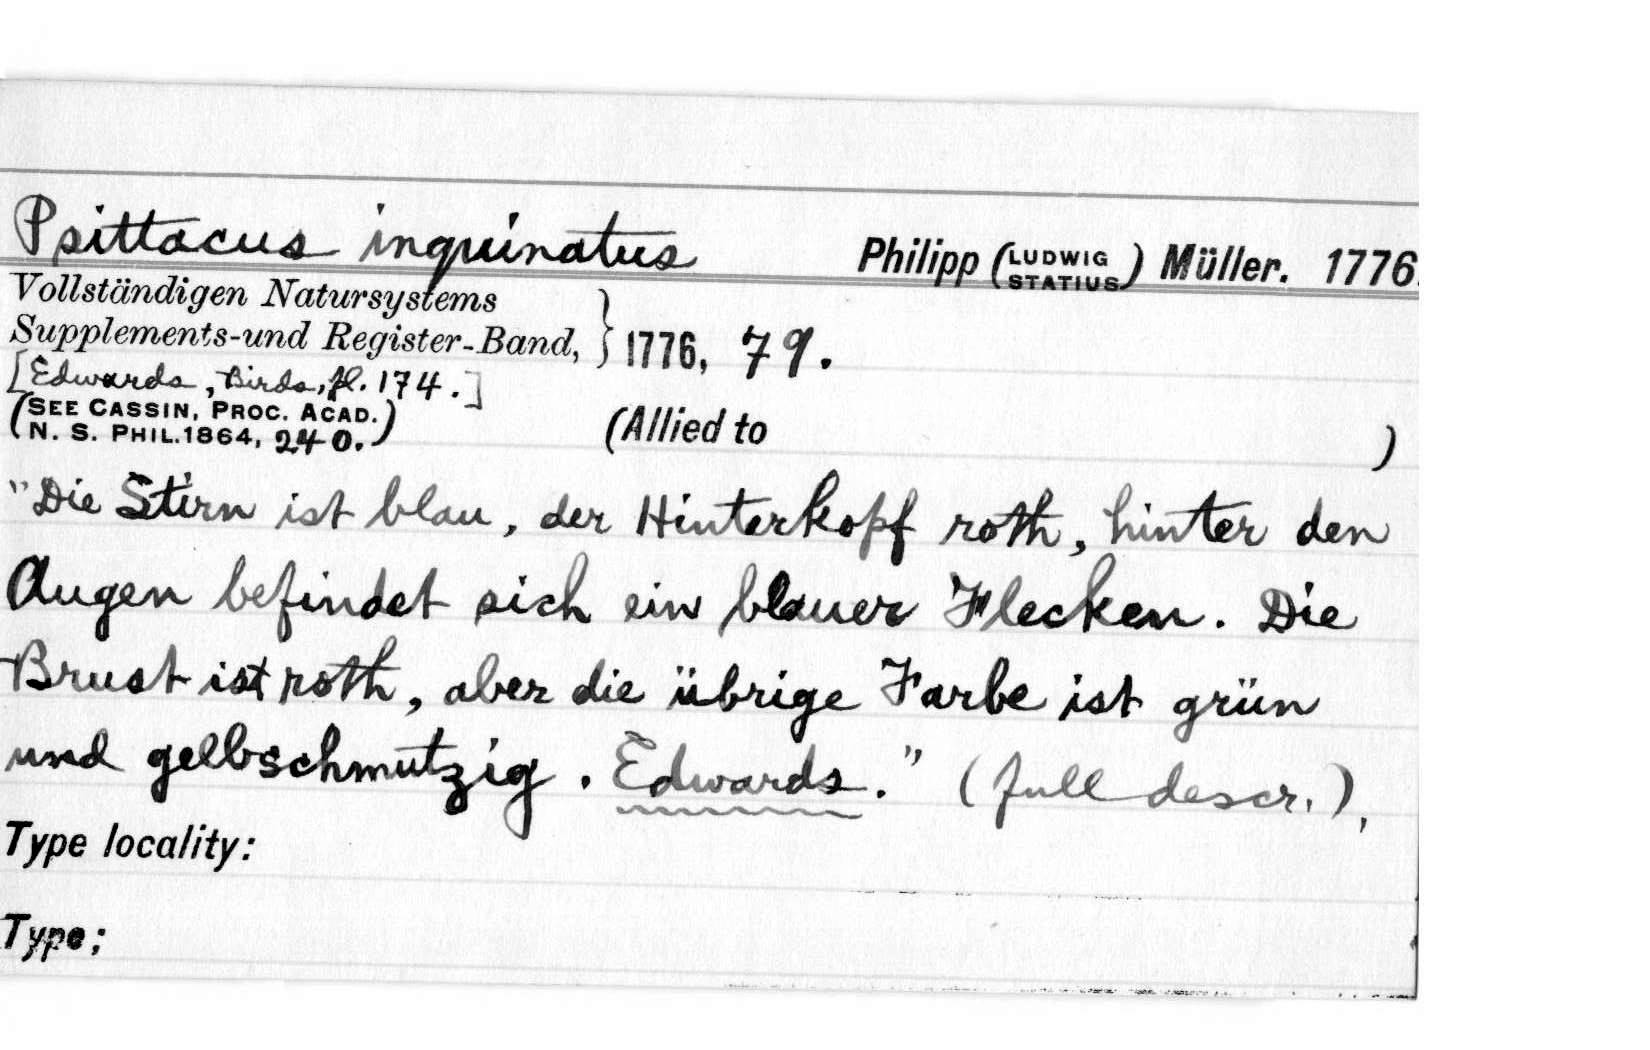 Psittacus inquinatus Philipp (LUDWIG STATIUS) Müller. 1776.
Vollständigen Natursystems
Supplements-und Register-Band, } 1776, 79.
[Edwards, Birds, pl. 174.]
(SEE CASSIN, PROC. ACAD.
N. S. PHIL. 1864, 240.) (Allied to )
"Die Stirn ist blau, der Hinterkopf roth, hinter den
Augen befindet sich ein blauer Flecken. Die
Brust ist roth, aber die übrige Farbe ist grün
und gelbschmutzig. Edwards." (full descr.),
Type locality:
Type;